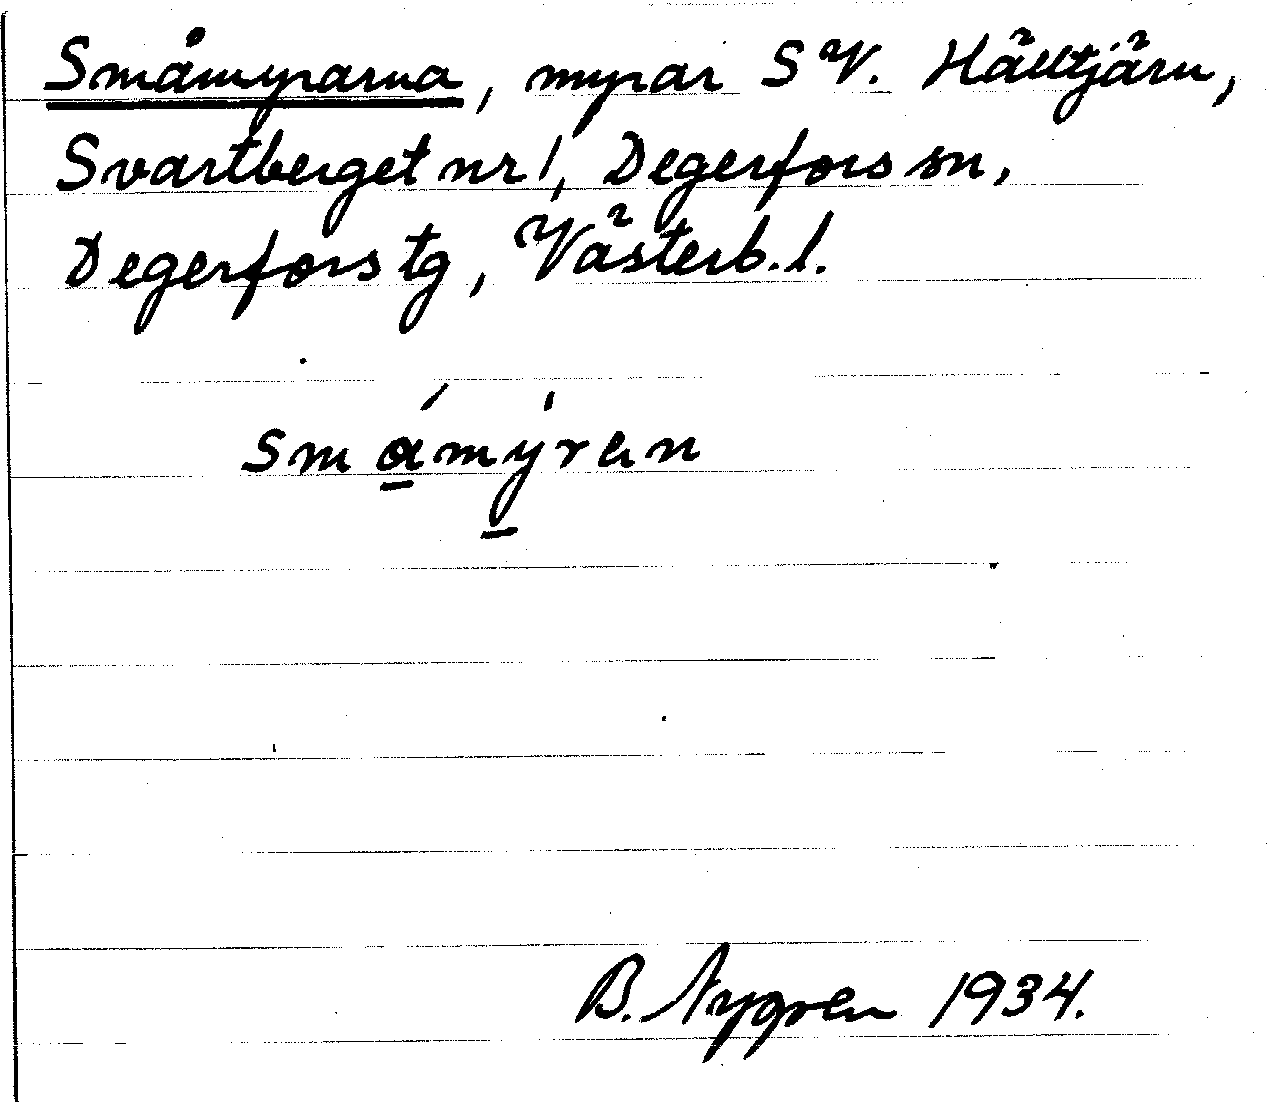 Småmyrarna, myrar SV. Hälltjärn,
Svartberget nr 1, Degerfors sn,
Degerfors tg, Västerb. l.
Småmýren
B. Nygren 1934.